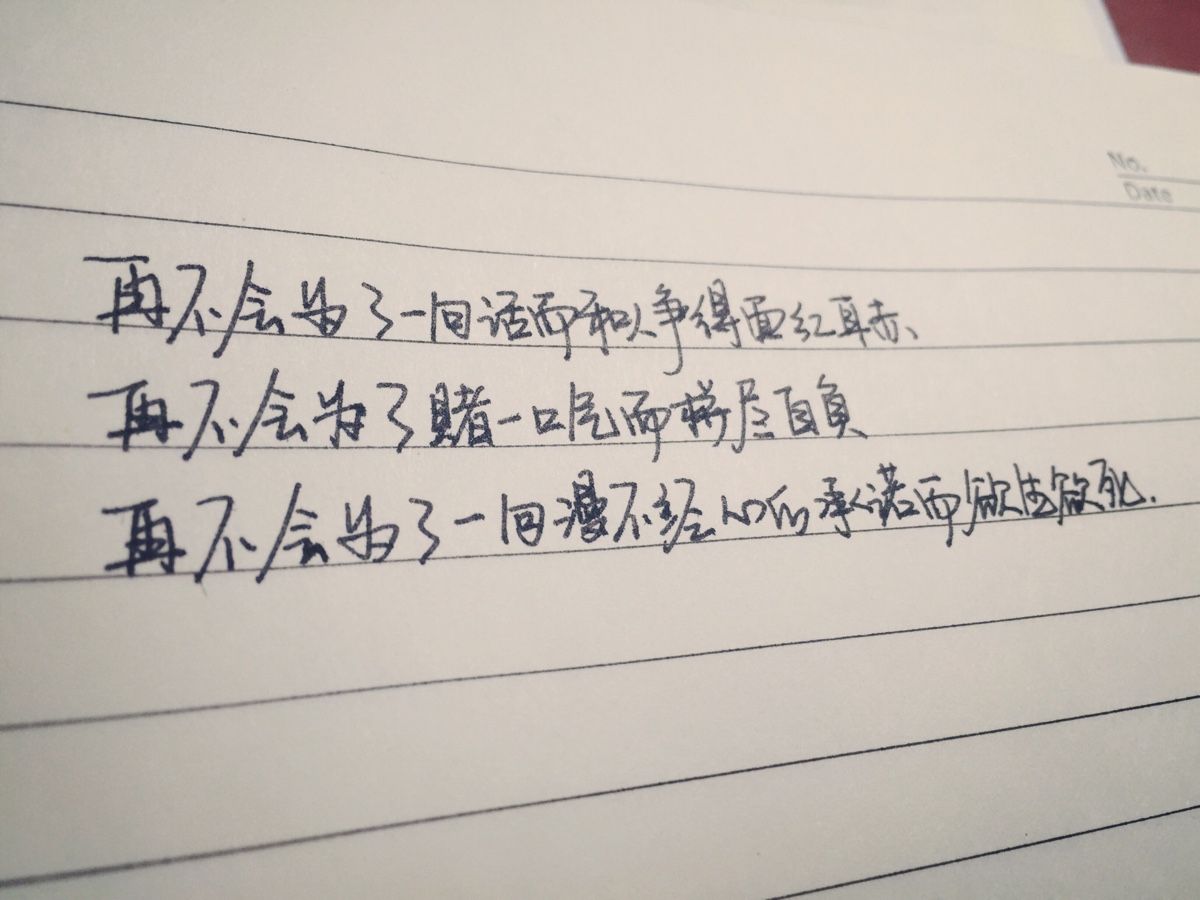 No.
Date
再不会为了一句话而和人争得面红耳赤、
再不会为了赌一口气而拼尽自负
再不会为了一句漫不经心的承诺而欲生欲死.